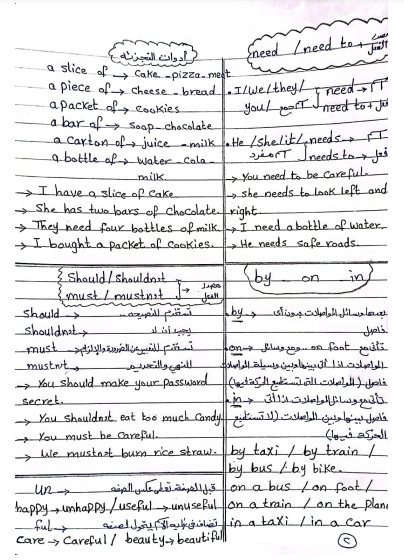 أدوات التجزئة
a slice of → cake - pizza - meat
a piece of → cheese - bread
a packet of → cookies
a bar of → soap - chocolate
a carton of → juice - milk
a bottle of → water - cola -
milk.
→ I have a slice of cake
→ She has two bars of chocolate.
→ They need four bottles of milk.
→ I bought a packet of cookies.
need / need to + مصدر الفعل
. I/we/they/ need →
you/ جمع need to + فعل
. He / she / it / needs →
مفرد needs to → فعل
→ You need to be careful.
→ she needs to look left and
right.
→ I need a bottle of water.
→ He needs safe roads.
Should / Shouldnot
must / mustnot → مصدر الفعل
should → تستخدم للنصيحة
Shouldnot → يجب أن لا
must → تستخدم للتعبير عن الضرورة والإلزام
mustn't → للنهي والتحذير
→ You should make your password
secret.
→ You shouldnot eat too much candy
→ You must be careful.
→ We mustnot burn rice straw.
un → قبل الصفة تعطى عكس الصفة
happy → unhappy / useful → unuseful
ful → تضاف فى نهاية الاسم يتحول لصفة
care → careful / beauty → beautiful
by on in
. by → بعدها وسائل المواصلات بدون أى
فاصل
. on → تأتى مع on foot ومع وسائل
المواصلات اذا أتى بينها وبين وسيلة المواصلات
فاصل (المواصلات التى تستطيع الحركة فيها)
. in → تأتى مع وسائل المواصلات اذا أتى
فاصل بينها وبين المواصلات (لا تستطيع
الحركة فيها)
by taxi / by train /
by bus / by bike.
on a bus / on foot /
on a train / on the plane
in a taxi / in a car
٢